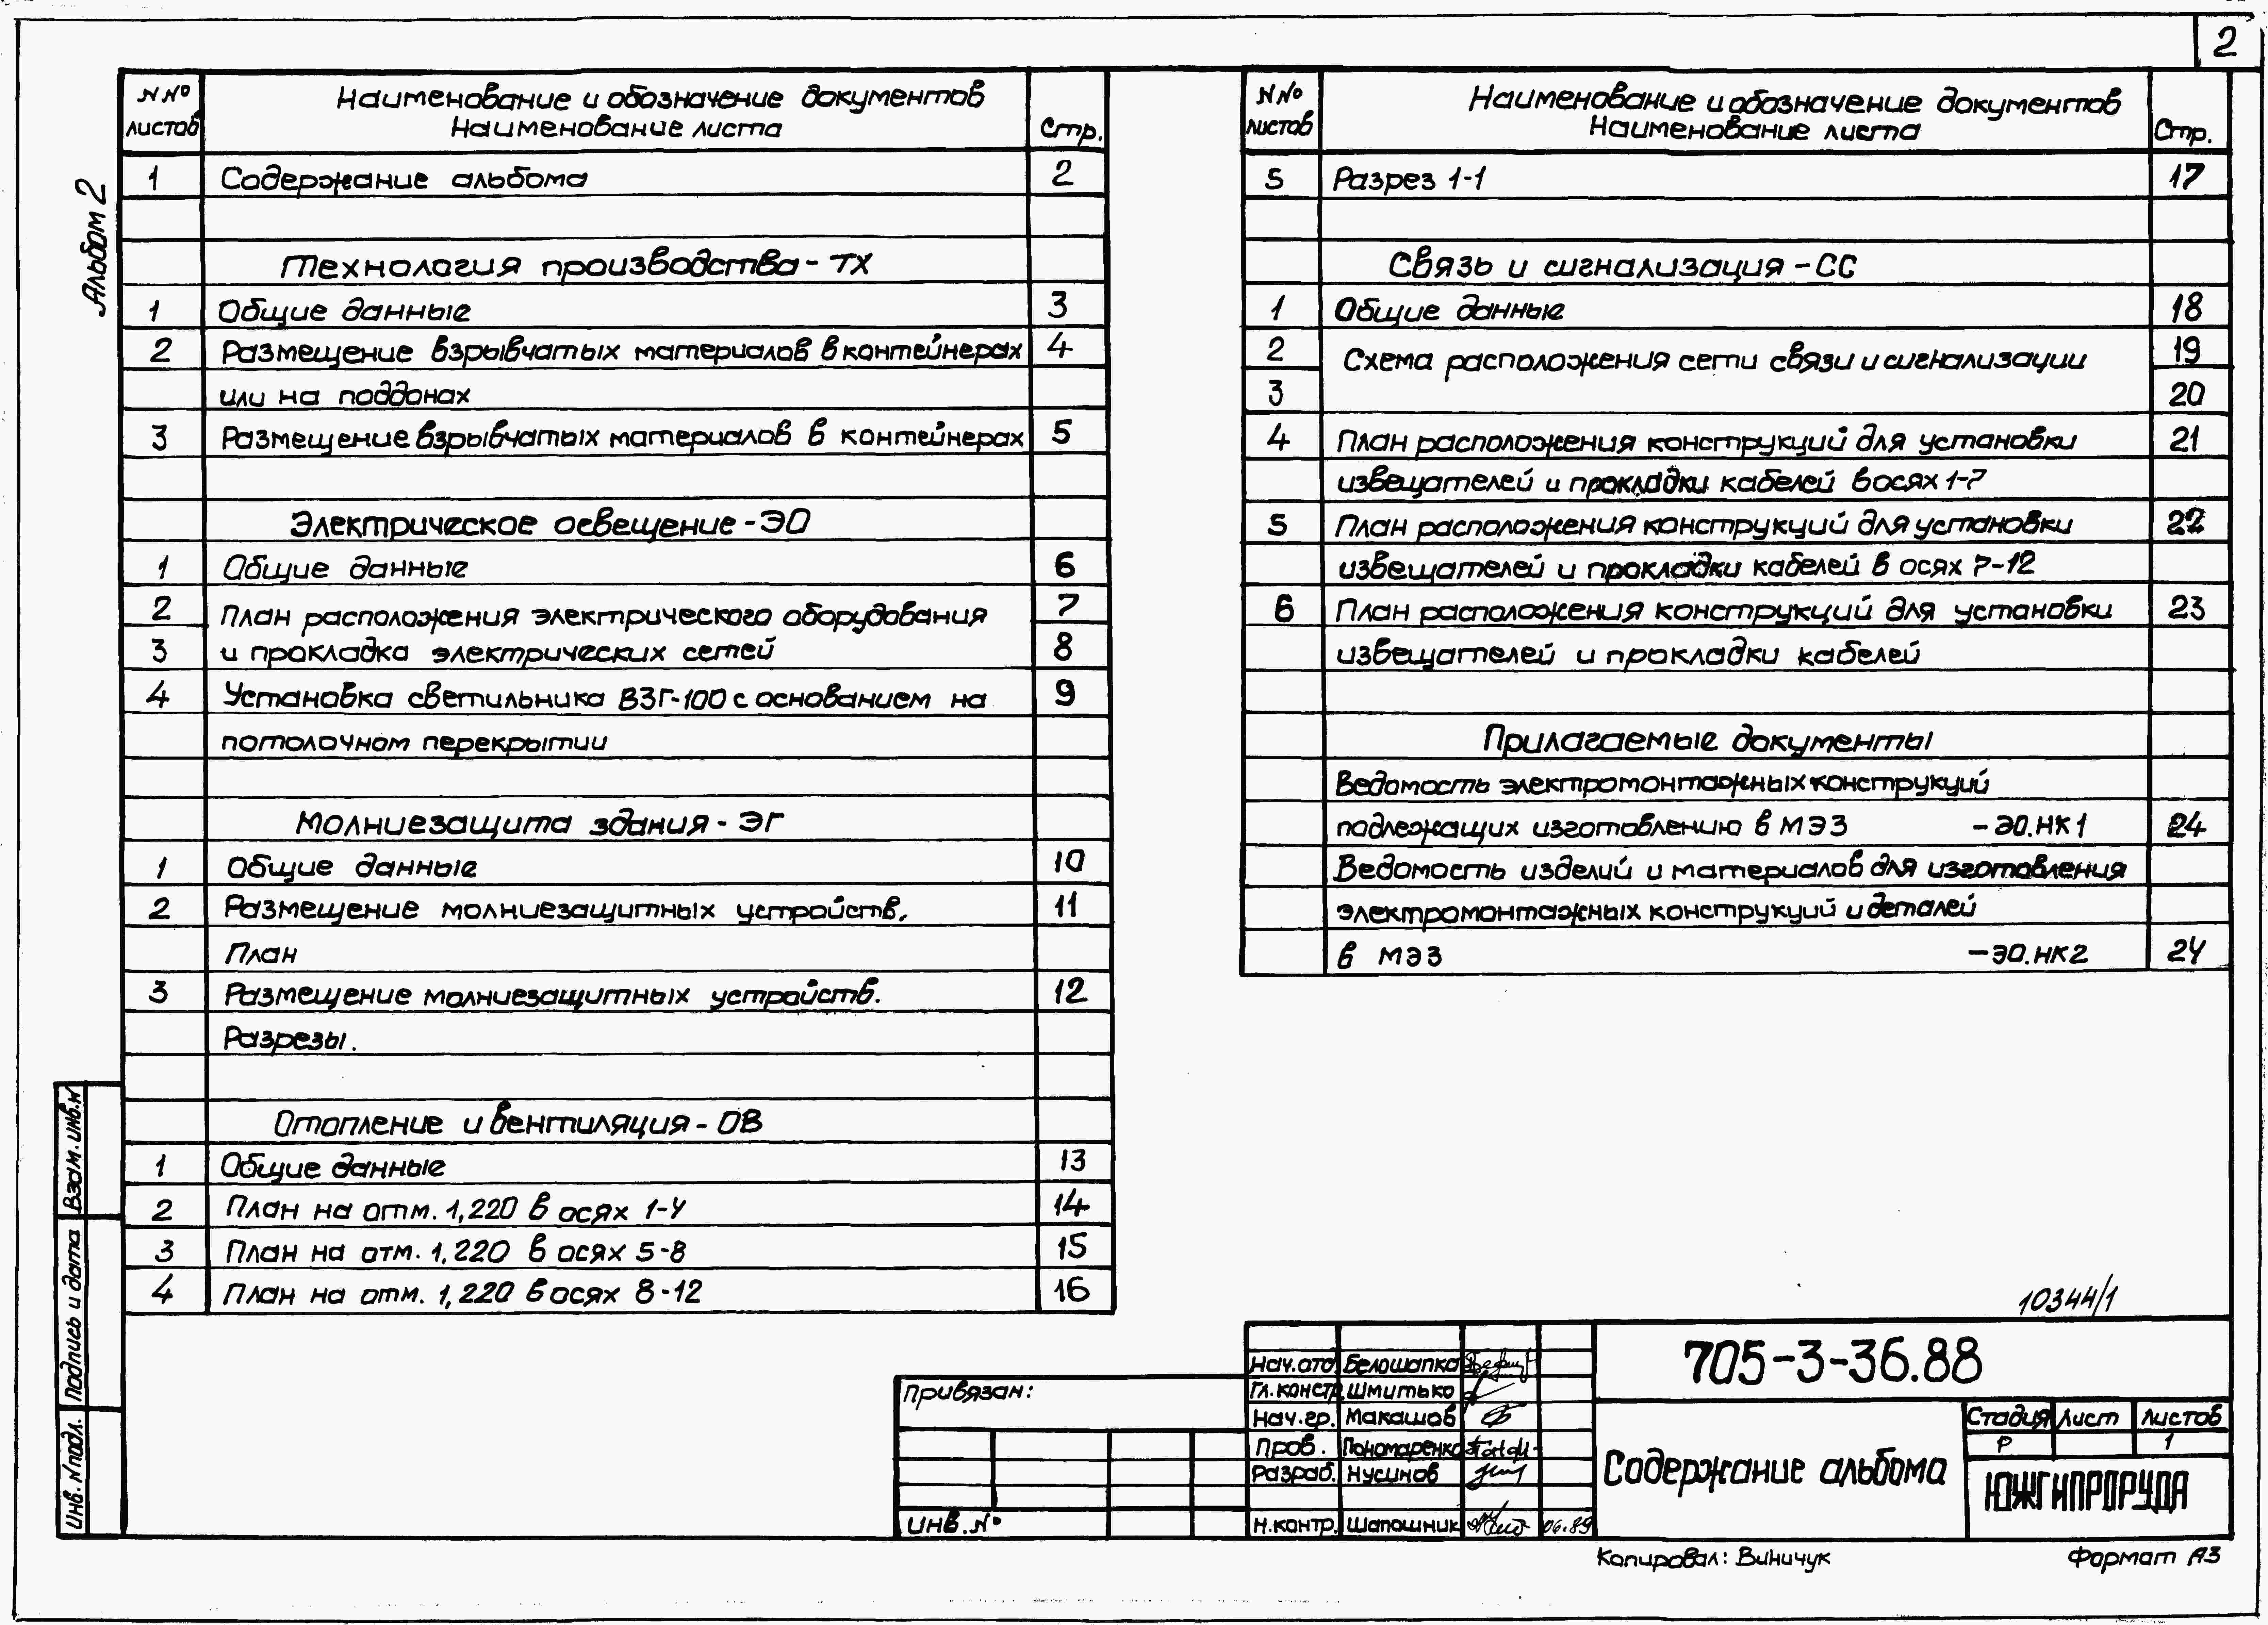 2
Альбом 2
N Nº листов
Наименование и обозначение документов
Наименование листа
Стр.
1 Содержание альбома 2
Технология производства - ТХ
1 Общие данные 3
2 Размещение взрывчатых материалов в контейнерах 4
или на поддонах
3 Размещение взрывчатых материалов в контейнерах 5
Электрическое освещение - ЭО
1 Общие данные 6
2 План расположения электрического оборудования 7
3 и прокладка электрических сетей 8
4 Установка светильника ВЗГ-100 с основанием на 9
потолочном перекрытии
Молниезащита здания - ЭГ
1 Общие данные 10
2 Размещение молниезащитных устройств. 11
План
3 Размещение молниезащитных устройств. 12
Разрезы.
Отопление и вентиляция - ОВ
1 Общие данные 13
2 План на отм. 1,220 в осях 1-4 14
3 План на отм. 1,220 в осях 5-8 15
4 План на отм. 1,220 в осях 8-12 16
N Nº листов
Наименование и обозначение документов
Наименование листа
Стр.
5 Разрез 1-1 17
Связь и сигнализация - СС
1 Общие данные 18
2 Схема расположения сети связи и сигнализации 19
3 20
4 План расположения конструкций для установки 21
извещателей и прокладки кабелей в осях 1-7
5 План расположения конструкций для установки 22
извещателей и прокладки кабелей в осях 7-12
6 План расположения конструкций для установки 23
извещателей и прокладки кабелей
Прилагаемые документы
Ведомость электромонтажных конструкций
подлежащих изготовлению в МЭЗ - ЭО.НК1 24
Ведомость изделий и материалов для изготовления
электромонтажных конструкций и деталей
в МЭЗ - ЭО.НК2 24
Взам. инв. N
Подпись и дата
Инв. N подл.
10344/1
Привязан:
Инв. Nº
Нач. отд. Белошапка
Гл. констр. Шмитько
Нач. гр. Макашов
Пров. Пономаренко
Разраб. Нусинов
Н. контр. Шапошник 06.89
705-3-36.88
Содержание альбома
Стадия Лист Листов
Р 1
ЮЖГИПРОРУДА
Копировал: Виничук
Формат А3